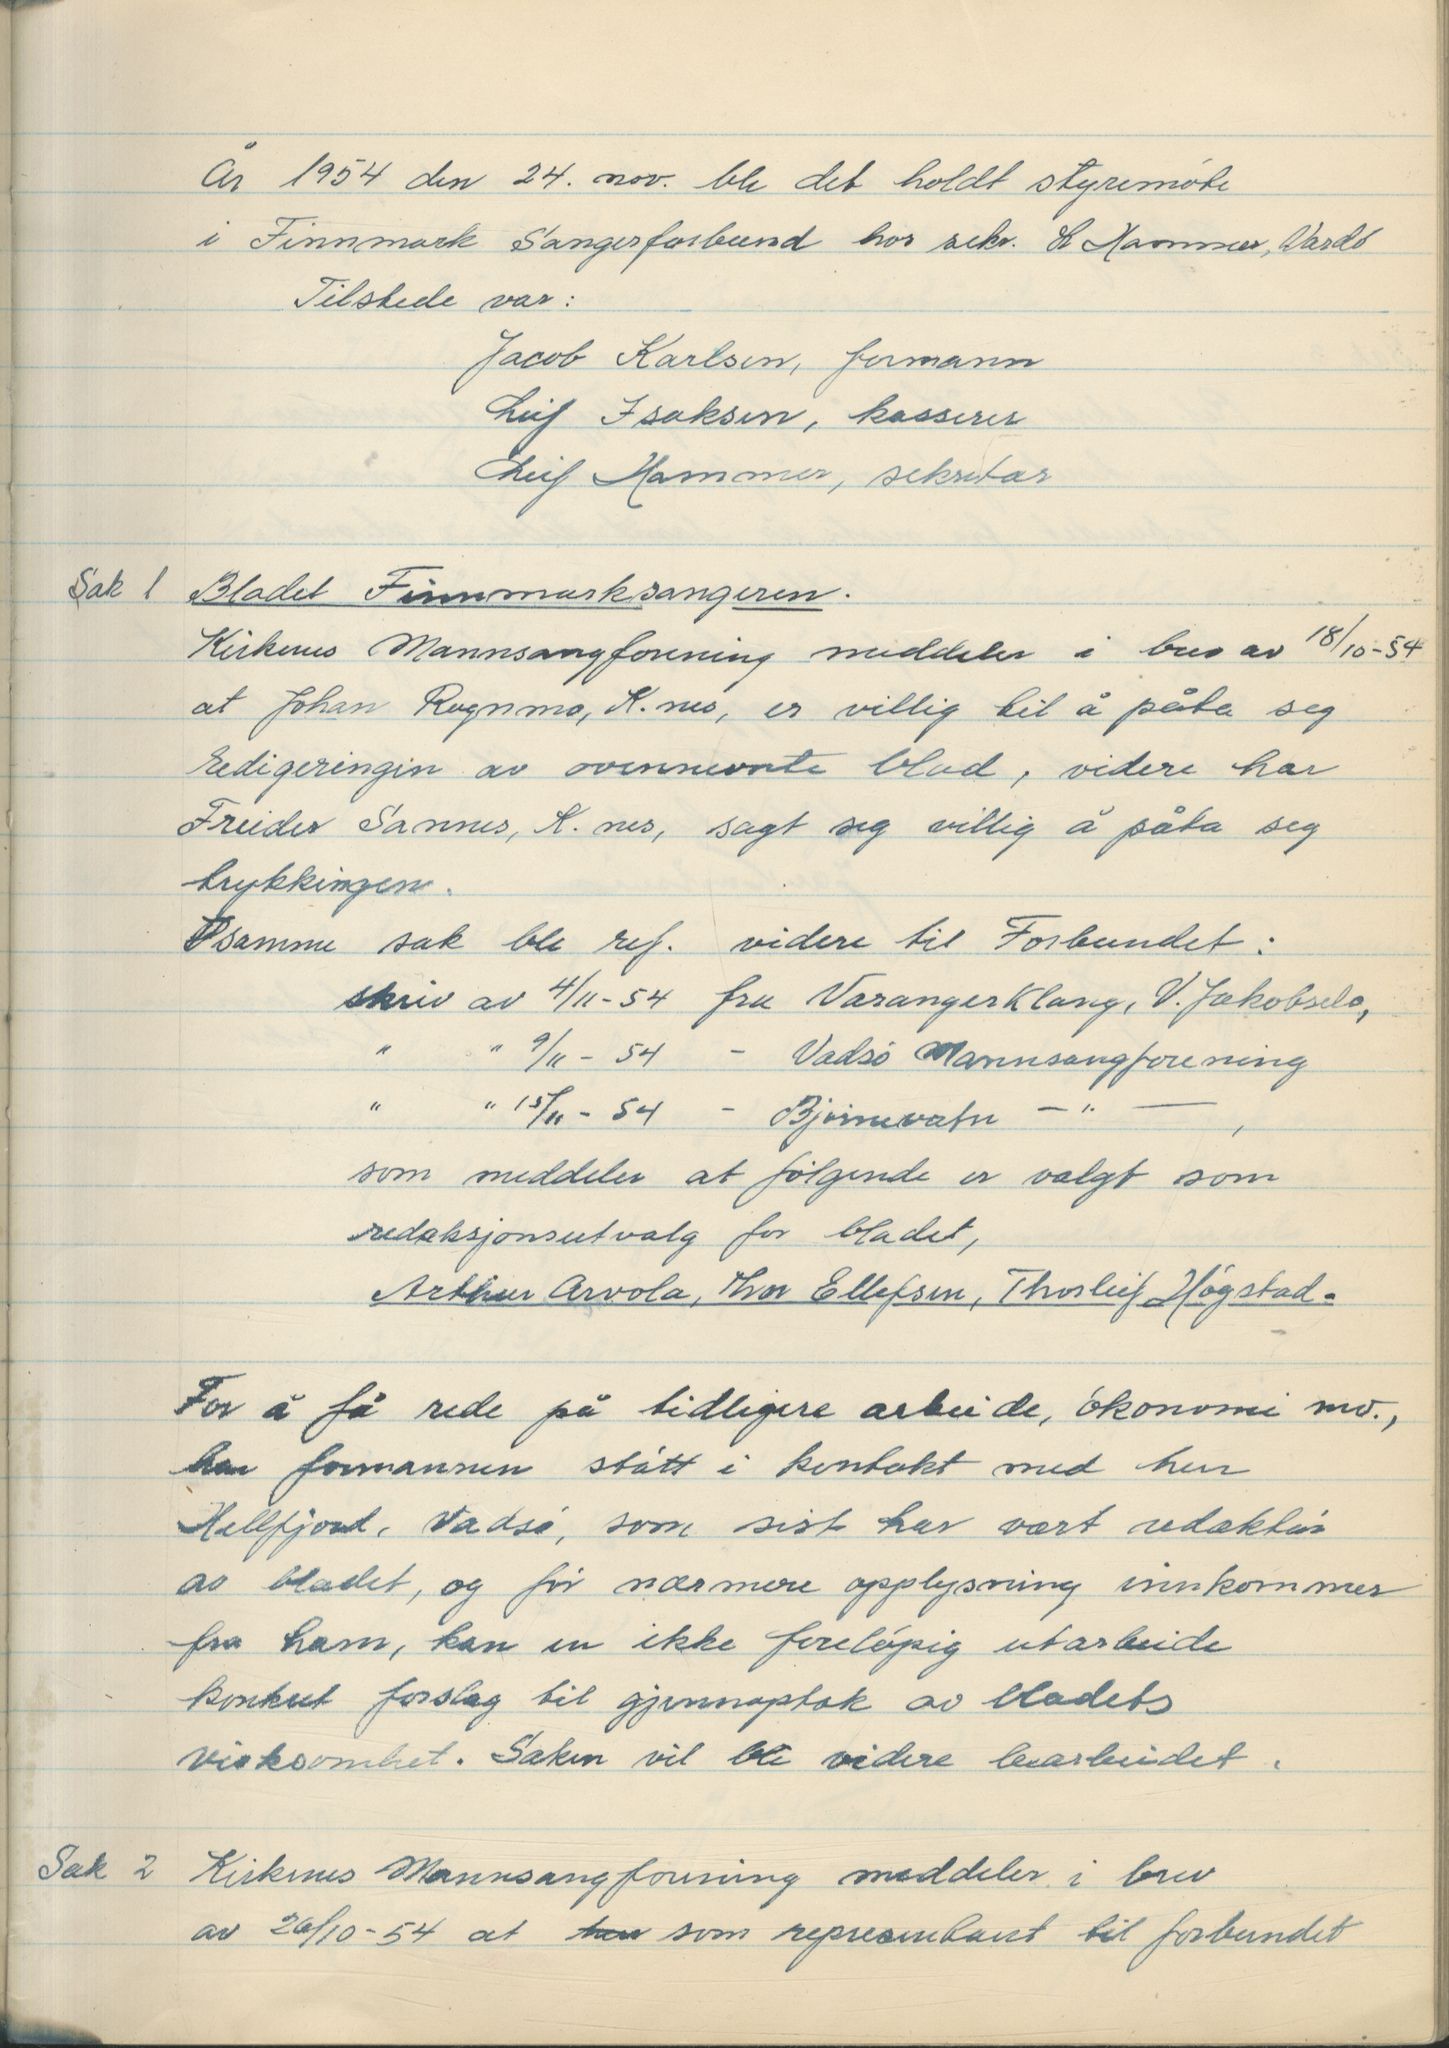 År 1954 den 24. nov. ble det holdt styremöte
i Finnmark Sangerforbund hos sekr. L Hammer, Vardö
Tilstede var:
Jacob Karlsen, formann
Leif Isaksen, kasserer
Leif Hammer, sekretær
Sak 1 Bladet Finnmarksangeren.
Kirkenes Mannsangforening meddeler i brev av 18/10-54
at Johan Rognmo, K.nes, er villig til å påta seg
redigeringin av ovennevnte blad, videre har
Freider Sannes, K.nes, sagt seg villig å påta seg
trykkingen.
I samme sak ble ref. videre til Forbundet:
skriv av 4/11-54 fra VarangerKlang, V. Jakobselv,
" " 9/11-54 - Vadsö Mannsangforening
" " 15/11-54 - Björnevatn -"-,
som meddeler at fölgende er valgt som
redaksjonsutvalg for bladet,
Arthur Arvola, Thor Ellefsen, Thorleif Högstad.
For å få rede på tidligere arbeide, ökonomi mv.,
har formannen stått i kontakt med herr
Hellfjord, Vadsö, som sist har vært redaktör
av bladet, og för nærmere opplysning innkommer
fra ham, kan en ikke forelöpig utarbeide
konkret forslag til gjennoptak av bladets
virksomhet. Saken vil bli videre bearbeidet.
Sak 2 Kirkenes Mannsangforening meddeler i brev
av 26/10-54 at som representant til forbundet